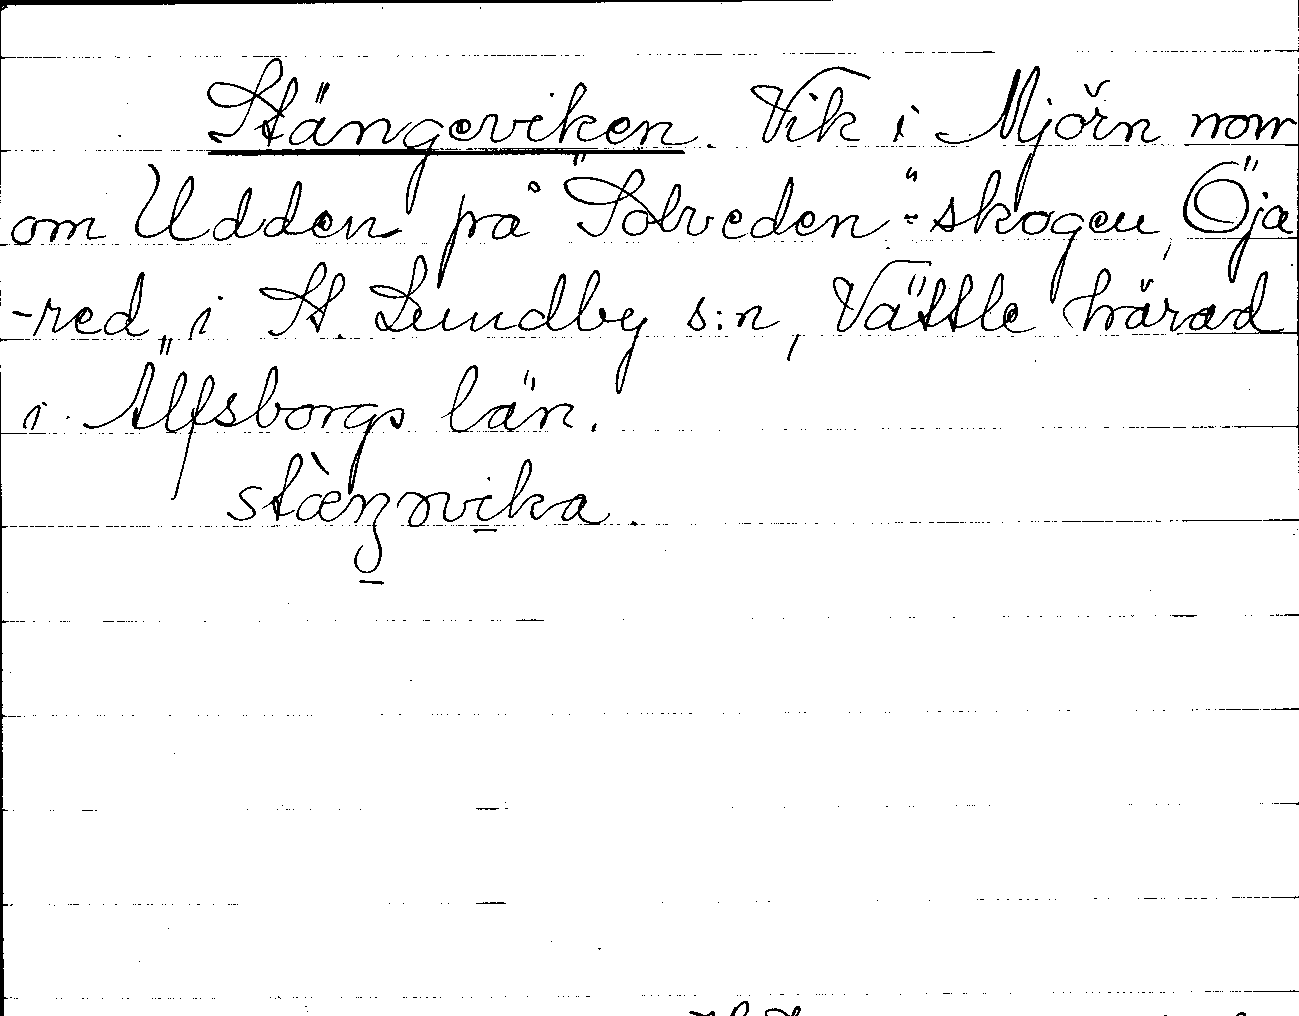 Stängeviken. Vik i Mjörn norr
om Udden på "Solveden"-skogen, Öja
-red, i St. Lundby s:n, Vättle härad
i Älfsborgs län.